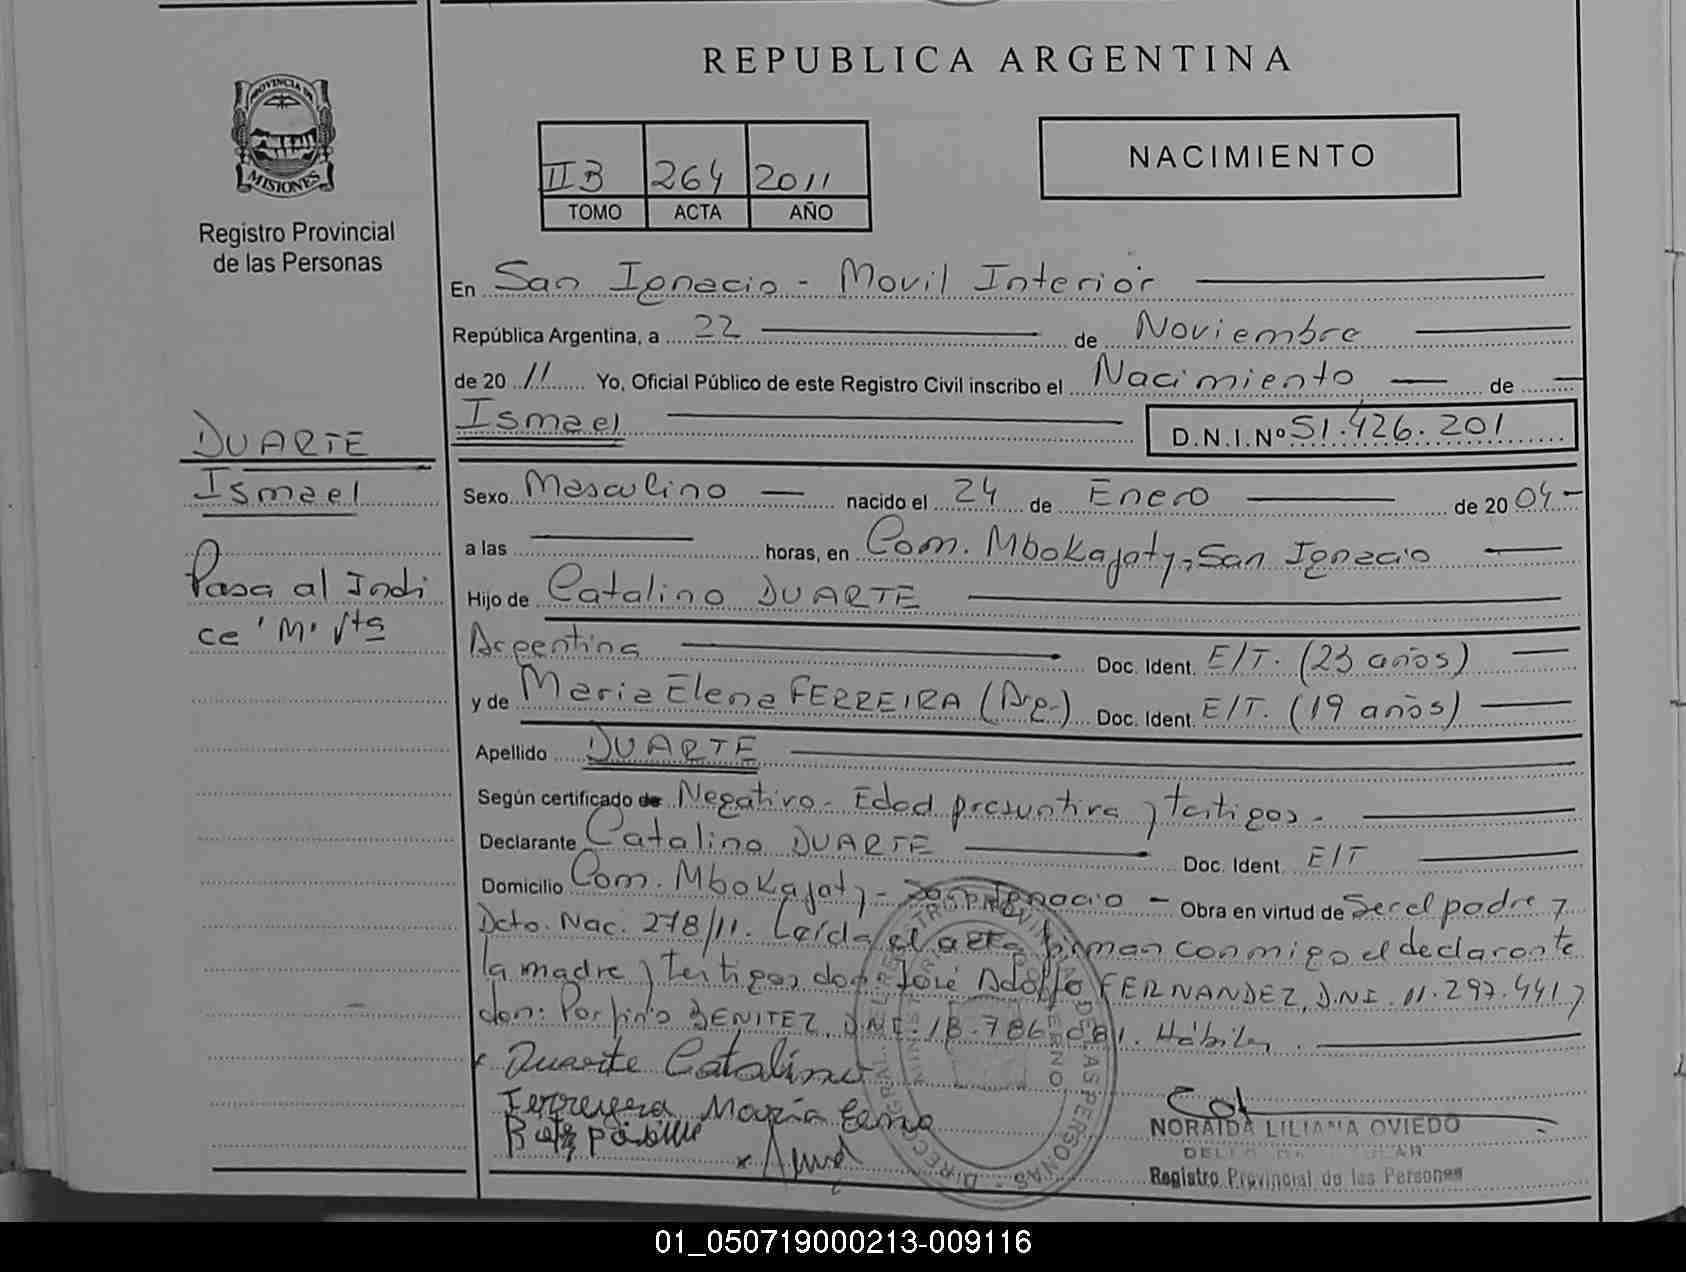 REPUBLICA ARGENTINA
PROVINCIA DE
MISIONES
Registro Provincial
de las Personas
II B 264 2011
TOMO ACTA AÑO
NACIMIENTO
En San Ignacio - Movil Interior
República Argentina, a 22 de Noviembre
de 20 11 Yo, Oficial Público de este Registro Civil inscribo el Nacimiento de
Ismael D.N.I.Nº 51.426.201
DUARTE
Ismael
Pasa al Indi
ce "M" Vta
Sexo Masculino nacido el 24 de Enero de 20 04
a las horas, en Com. Mbokajaty, San Ignacio
Hijo de Catalino DUARTE
Argentina Doc. Ident. E/T. (23 años)
y de Maria Elena FERREIRA (Arg.) Doc. Ident. E/T. (19 años)
Apellido DUARTE
Según certificado de Negativo - Edad presuntiva y testigos.
Declarante Catalino DUARTE Doc. Ident. E/T
Domicilio Com. Mbokajaty - San Ignacio - Obra en virtud de Ser el padre y
Dcto. Nac. 278/11. Leída el acta firman conmigo el declarante
la madre y testigos don: José Adolfo FERNANDEZ, D.N.I. 11.297.441 y
don: Porfirio BENITEZ, D.N.I. 18.786.081. Hábiles.
Duarte Catalino
Ferreyera María Elena
NORAIDA LILIANA OVIEDO
Registro Provincial de las Personas
01_050719000213-009116